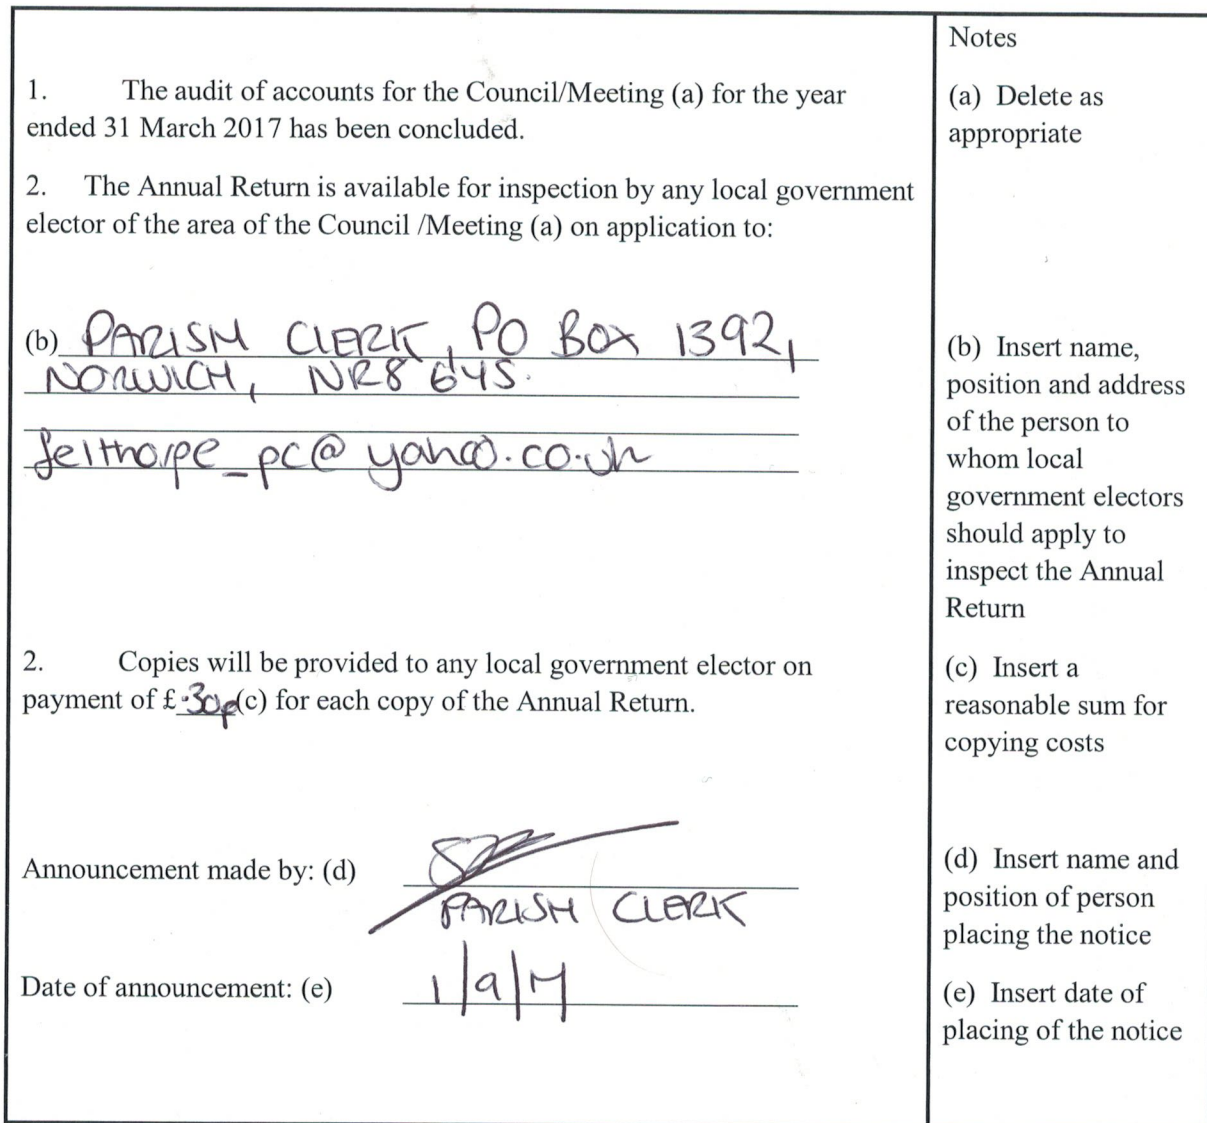 1. The audit of accounts for the Council/Meeting (a) for the year
ended 31 March 2017 has been concluded.
2. The Annual Return is available for inspection by any local government
elector of the area of the Council /Meeting (a) on application to:
(b) PARISH CLERK, PO BOX 1392,
NORWICH, NR8 6YS.
felthorpe_pc@yahoo.co.uk
2. Copies will be provided to any local government elector on
payment of £.30p(c) for each copy of the Annual Return.
Announcement made by: (d)
PARISH CLERK
Date of announcement: (e) 1/9/17
Notes
(a) Delete as
appropriate
(b) Insert name,
position and address
of the person to
whom local
government electors
should apply to
inspect the Annual
Return
(c) Insert a
reasonable sum for
copying costs
(d) Insert name and
position of person
placing the notice
(e) Insert date of
placing of the notice